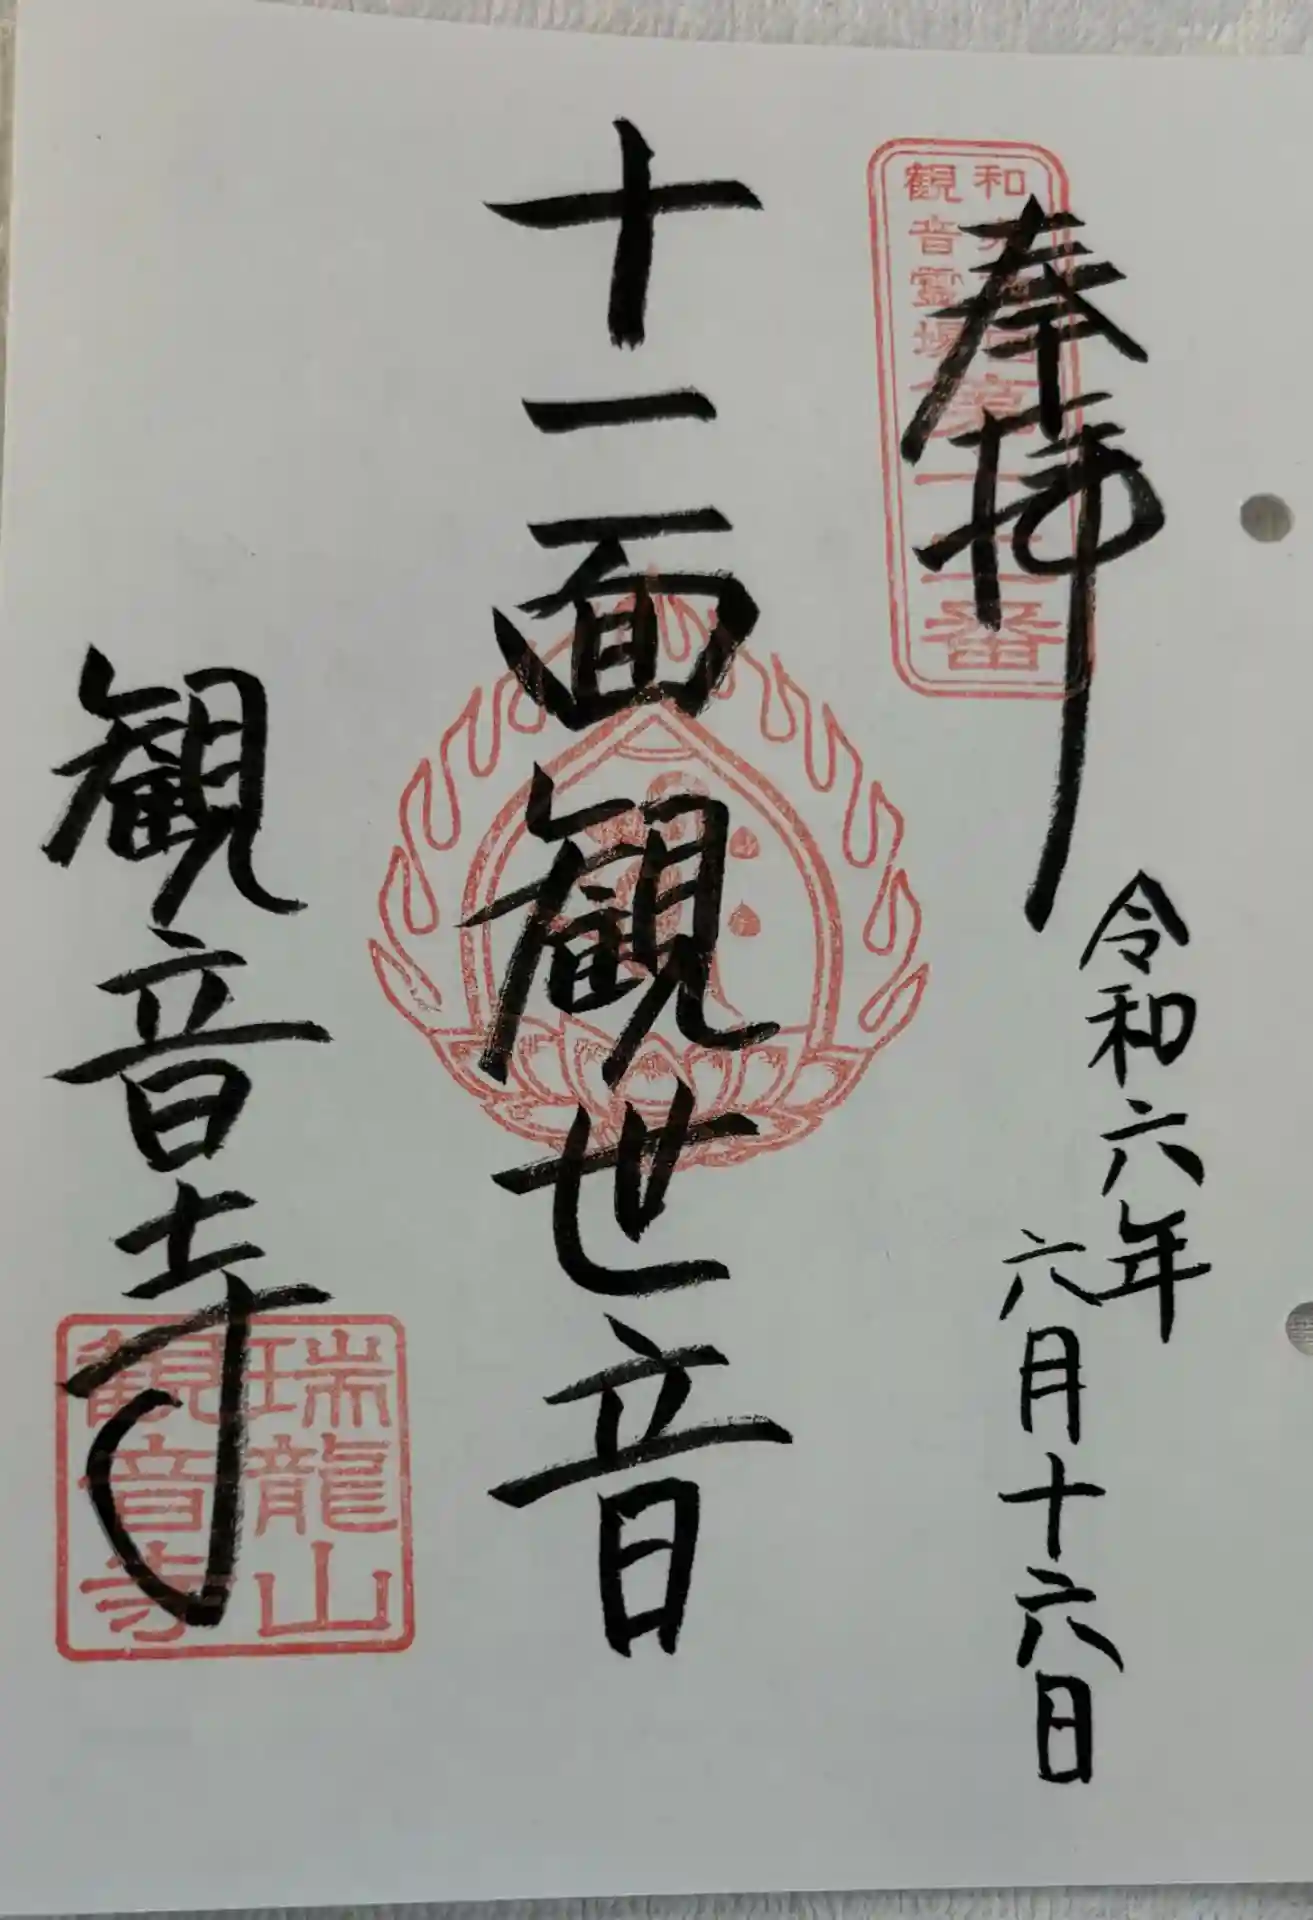 奉拝
令和六年
六月十六日
十一面観世音
観音寺
観音霊場
瑞龍山
観音寺